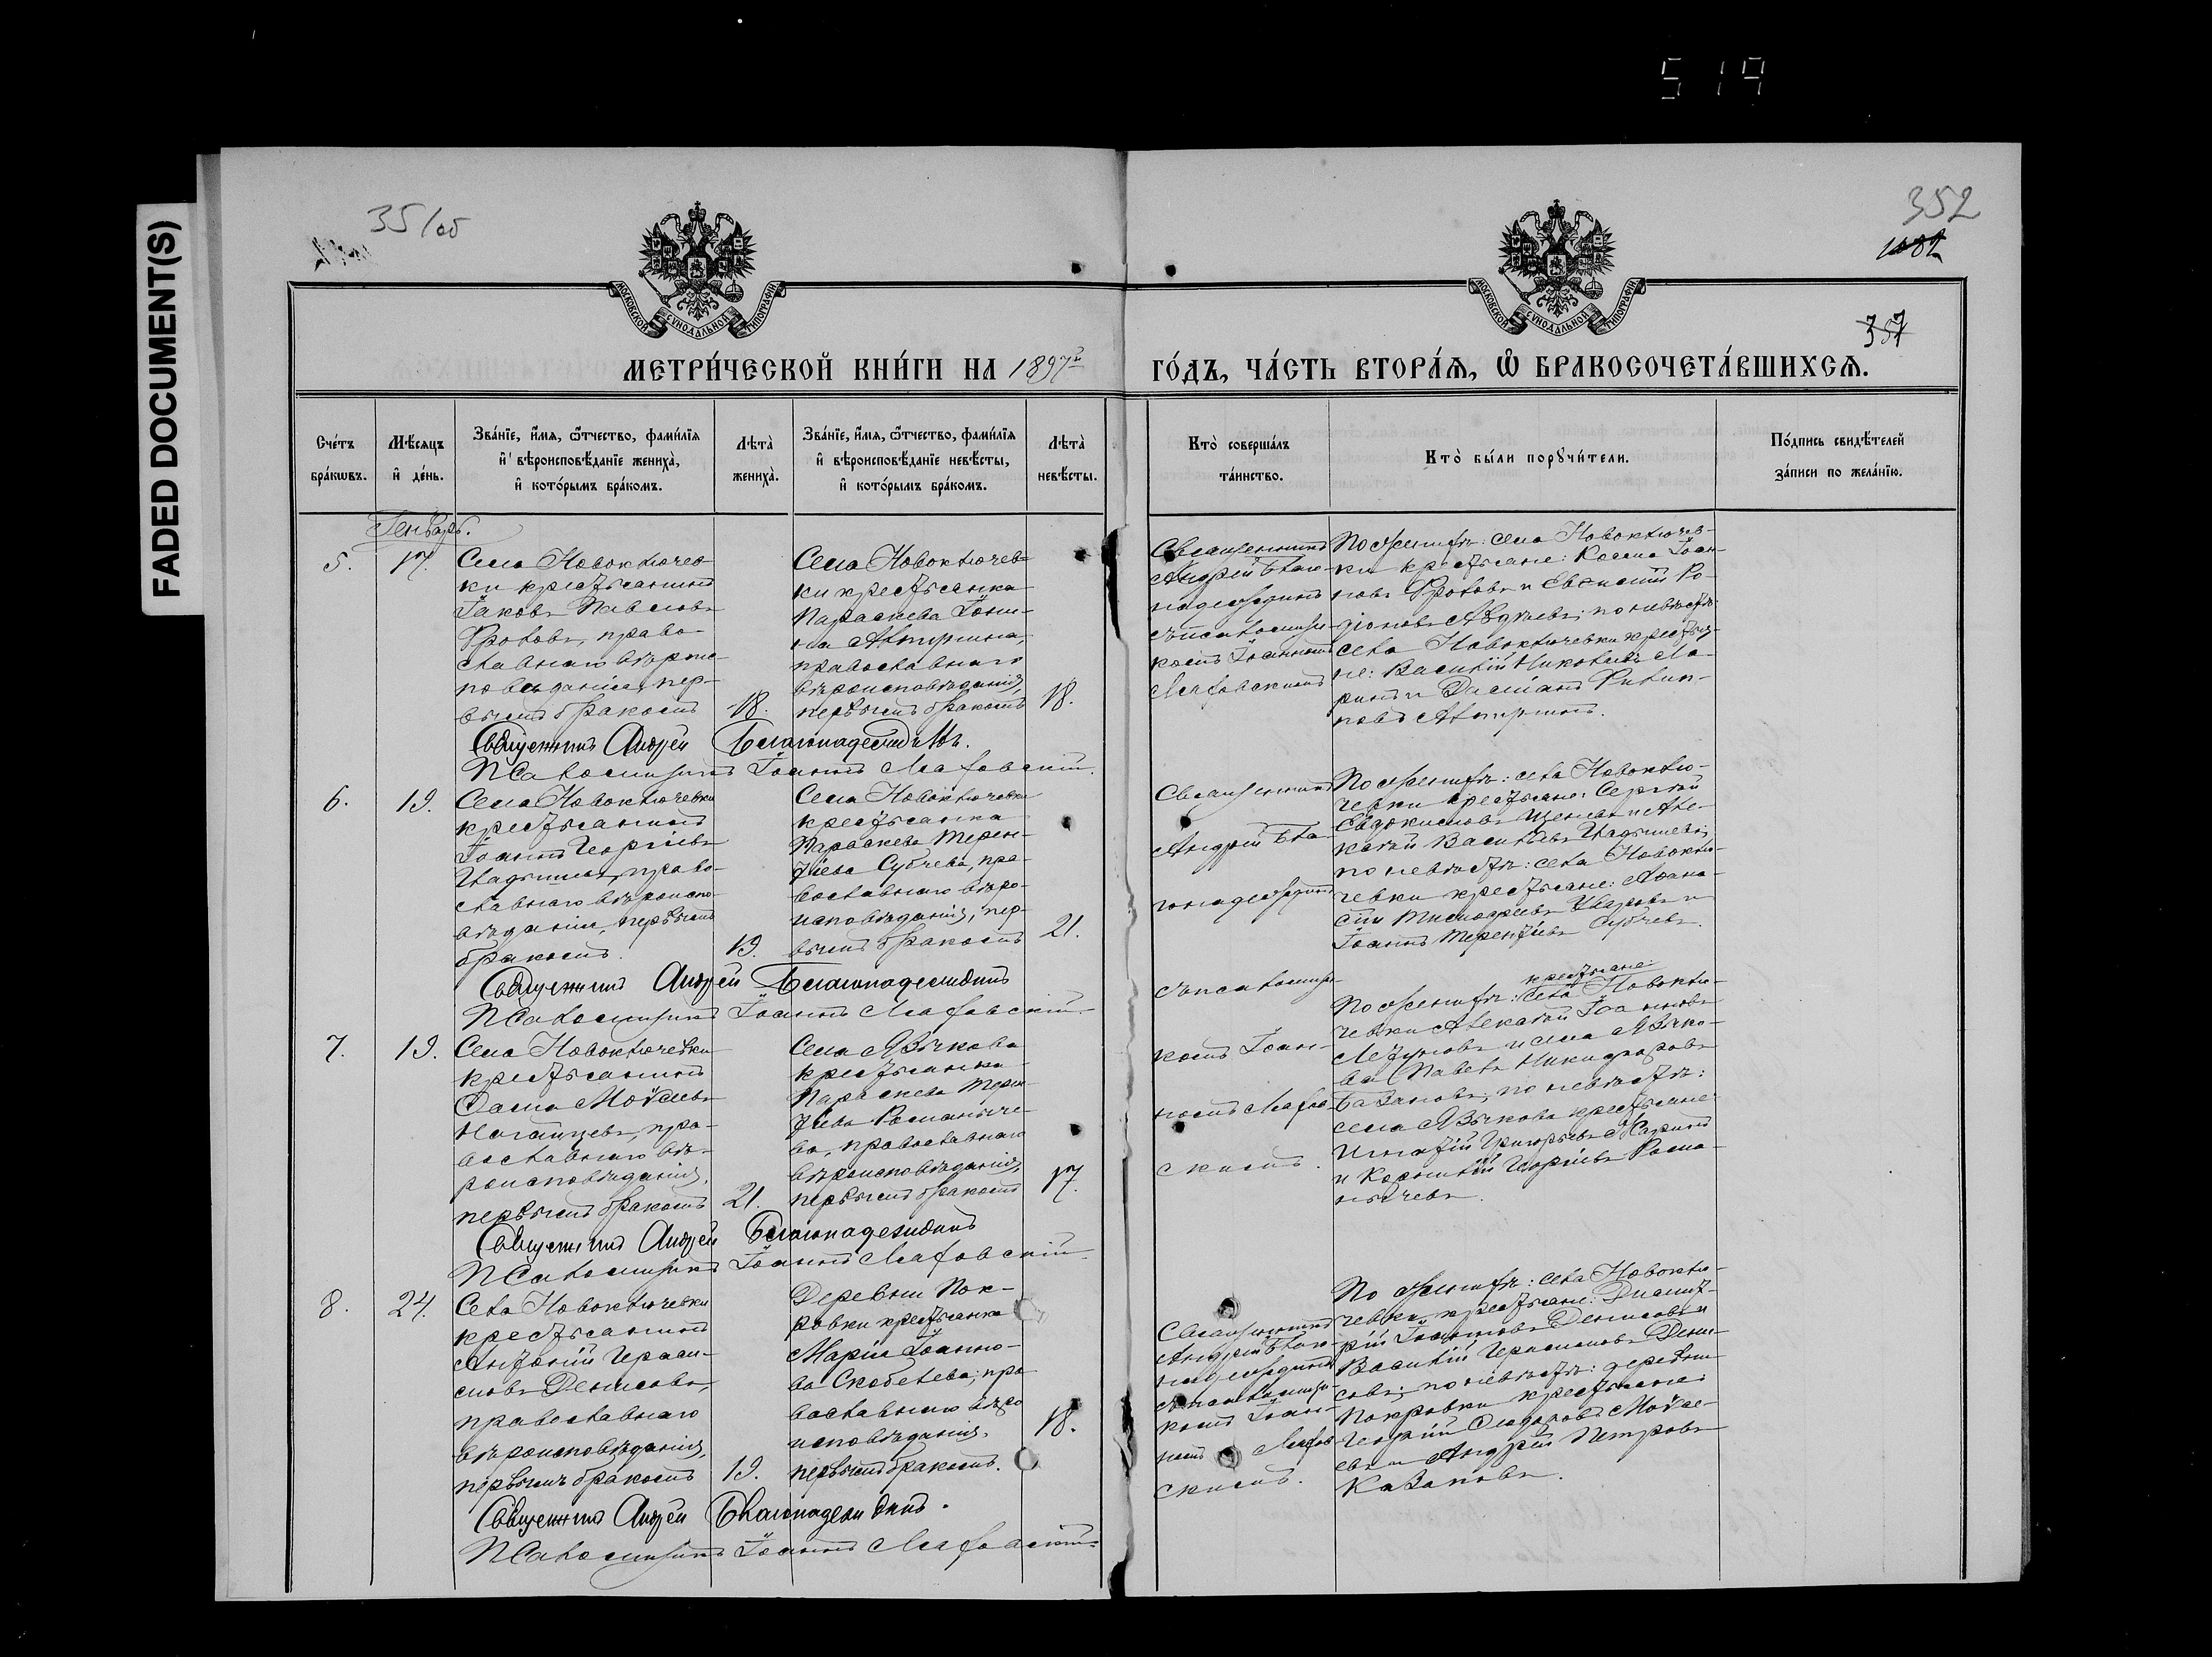 519
FADED DOCUMENT(S)
351об
352
МОСКОВСКОЙ СУНОДАЛЬНОЙ ТИПОГРАФІИ
МОСКОВСКОЙ СУНОДАЛЬНОЙ ТИПОГРАФІИ
МЕТРИ́ЧЕСКОЙ КНИ́ГИ НА 1897 ГО́ДЪ, ЧА́СТЬ ВТОРА́Ѧ, Ѡ҆ БРАКОСОЧЕТА́ВШИХСѦ.
Сче́тъ бра́кѡвъ.
Мѣ́сѧцъ и҆ де́нь.
Зва́нїе, и҆́мѧ, ѻ҆́тчество, фами́лїѧ
и҆ вѣроисповѣ́данїе жениха̀,
и҆ кото́рымъ бра́комъ.
Лѣта̀ жениха̀.
Зва́нїе, и҆́мѧ, ѻ҆́тчество, фами́лїѧ
и҆ вѣроисповѣ́данїе невѣ́сты,
и҆ кото́рымъ бра́комъ.
Лѣта̀ невѣ́сты.
Кто̀ соверша́лъ та́инство.
Кто̀ бы́ли порꙋчи́тели.
По́дпись свидѣ́телей за́писи по жела́нїю.
Генварь.
5.
17.
Села Новоключев-
ки крестьянинъ
Іаковъ Павловъ
Фроловъ, право-
славнаго вѣроис-
повѣданія, пер-
вымъ бракомъ
18.
Села Новоключев-
ки крестьянка
Параскева Іони-
на
православнаго
вѣроисповѣданія,
первымъ бракомъ
18.
Священникъ
Андрей Благо-
надеждинъ
съ псаломщи-
комъ Іоанномъ
По женихѣ: села Новоключев-
ки крестьяне: Косма Іоан-
новъ Фроловъ и Евѳимій Ро-
діоновъ Авдѣевъ; по невѣстѣ:
села Новоключевки крестья-
не: Василій Николаевъ Ла-
ринъ и Даміанъ Филип-
повъ
Священникъ Андрей Благонадеждинъ.
Псаломщикъ Іоаннъ
6.
19.
Села Новоключевки
крестьянинъ
Іоаннъ Георгіевъ
право-
славнаго вѣроиспо-
вѣданія, первымъ
бракомъ.
19.
Села Новоключевки
крестьянка
Параскева Терен-
тіева Субчева, пра-
вославнаго вѣро-
исповѣданія, пер-
вымъ бракомъ
21.
Священникъ
Андрей Бла-
гонадеждинъ
съ псаломщи-
комъ Іоан-
номъ
По женихѣ: села Новоклю-
чевки крестьяне: Сергій
Евдокимовъ и Але-
ксѣй Васильевъ
по невѣстѣ: села Новоклю-
чевки крестьяне: Аѳана-
сій Тимоѳеевъ и
Іоаннъ Терентіевъ Субчевъ.
Священникъ Андрей Благонадеждинъ
Псаломщикъ Іоаннъ
7.
19.
Села Новоключевки
крестьянинъ
Ѳома Моѵсеевъ
Ногайцевъ, пра-
вославнаго вѣ-
роисповѣданія,
первымъ бракомъ
21.
Села Языкова
крестьянка
Параскева Терен-
тіева Романыче-
ва, православнаго
вѣроисповѣданія,
первымъ бракомъ
17.
крестьяне:
По женихѣ: села Новоклю-
чевки Алексѣй Іоанновъ
и села Языко-
ва Павелъ Никифоровъ
по невѣстѣ:
села Языкова крестьяне:
Игнатій Григорьевъ
и Корнилій Георгіевъ Рома-
нычевъ.
Священникъ Андрей Благонадеждинъ
Псаломщикъ Іоаннъ
8.
24.
Села Новоключевки
крестьянинъ
Антоній Гераси-
мовъ Денисовъ,
православнаго
вѣроисповѣданія,
первымъ бракомъ
19.
Деревни Пок-
ровки крестьянка
Марія Іоанно-
ва Скобелева, пра-
вославнаго вѣро
исповѣданія,
первымъ бракомъ.
18.
Священникъ
Андрей Благо-
надеждинъ
съ псаломщи-
комъ Іоан-
номъ
По женихѣ: села Новоклю-
чевки крестьяне: Димит-
рій Іоанновъ Денисовъ и
Василій Герасимовъ Дени-
совъ; по невѣстѣ: деревни
Покровки крестьяне:
Георгій Ѳедоровъ Моѵсе-
евъ и Андрей Петровъ
Казаковъ.
Священникъ Андрей Благонадеждинъ.
Псаломщикъ Іоаннъ